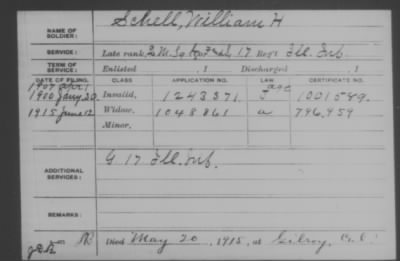 Schell, William H
NAME OF SOLDIER:
SERVICE: Late rank, 17 Reg't Ill. Inf.
TERM OF SERVICE: Enlisted , 1 Discharged , 1
DATE OF FILING. CLASS APPLICATION NO. LAW CERTIFICATE NO.
1907
1900 Jany 20 Invalid, 1243371 1001589.
1915 June 12 Widow, 1048861 a 796,959
Minor,
ADDITIONAL SERVICES: G 17 Ill. Inf.
REMARKS:
Died May 20, 1915, at Gilroy, Cal.